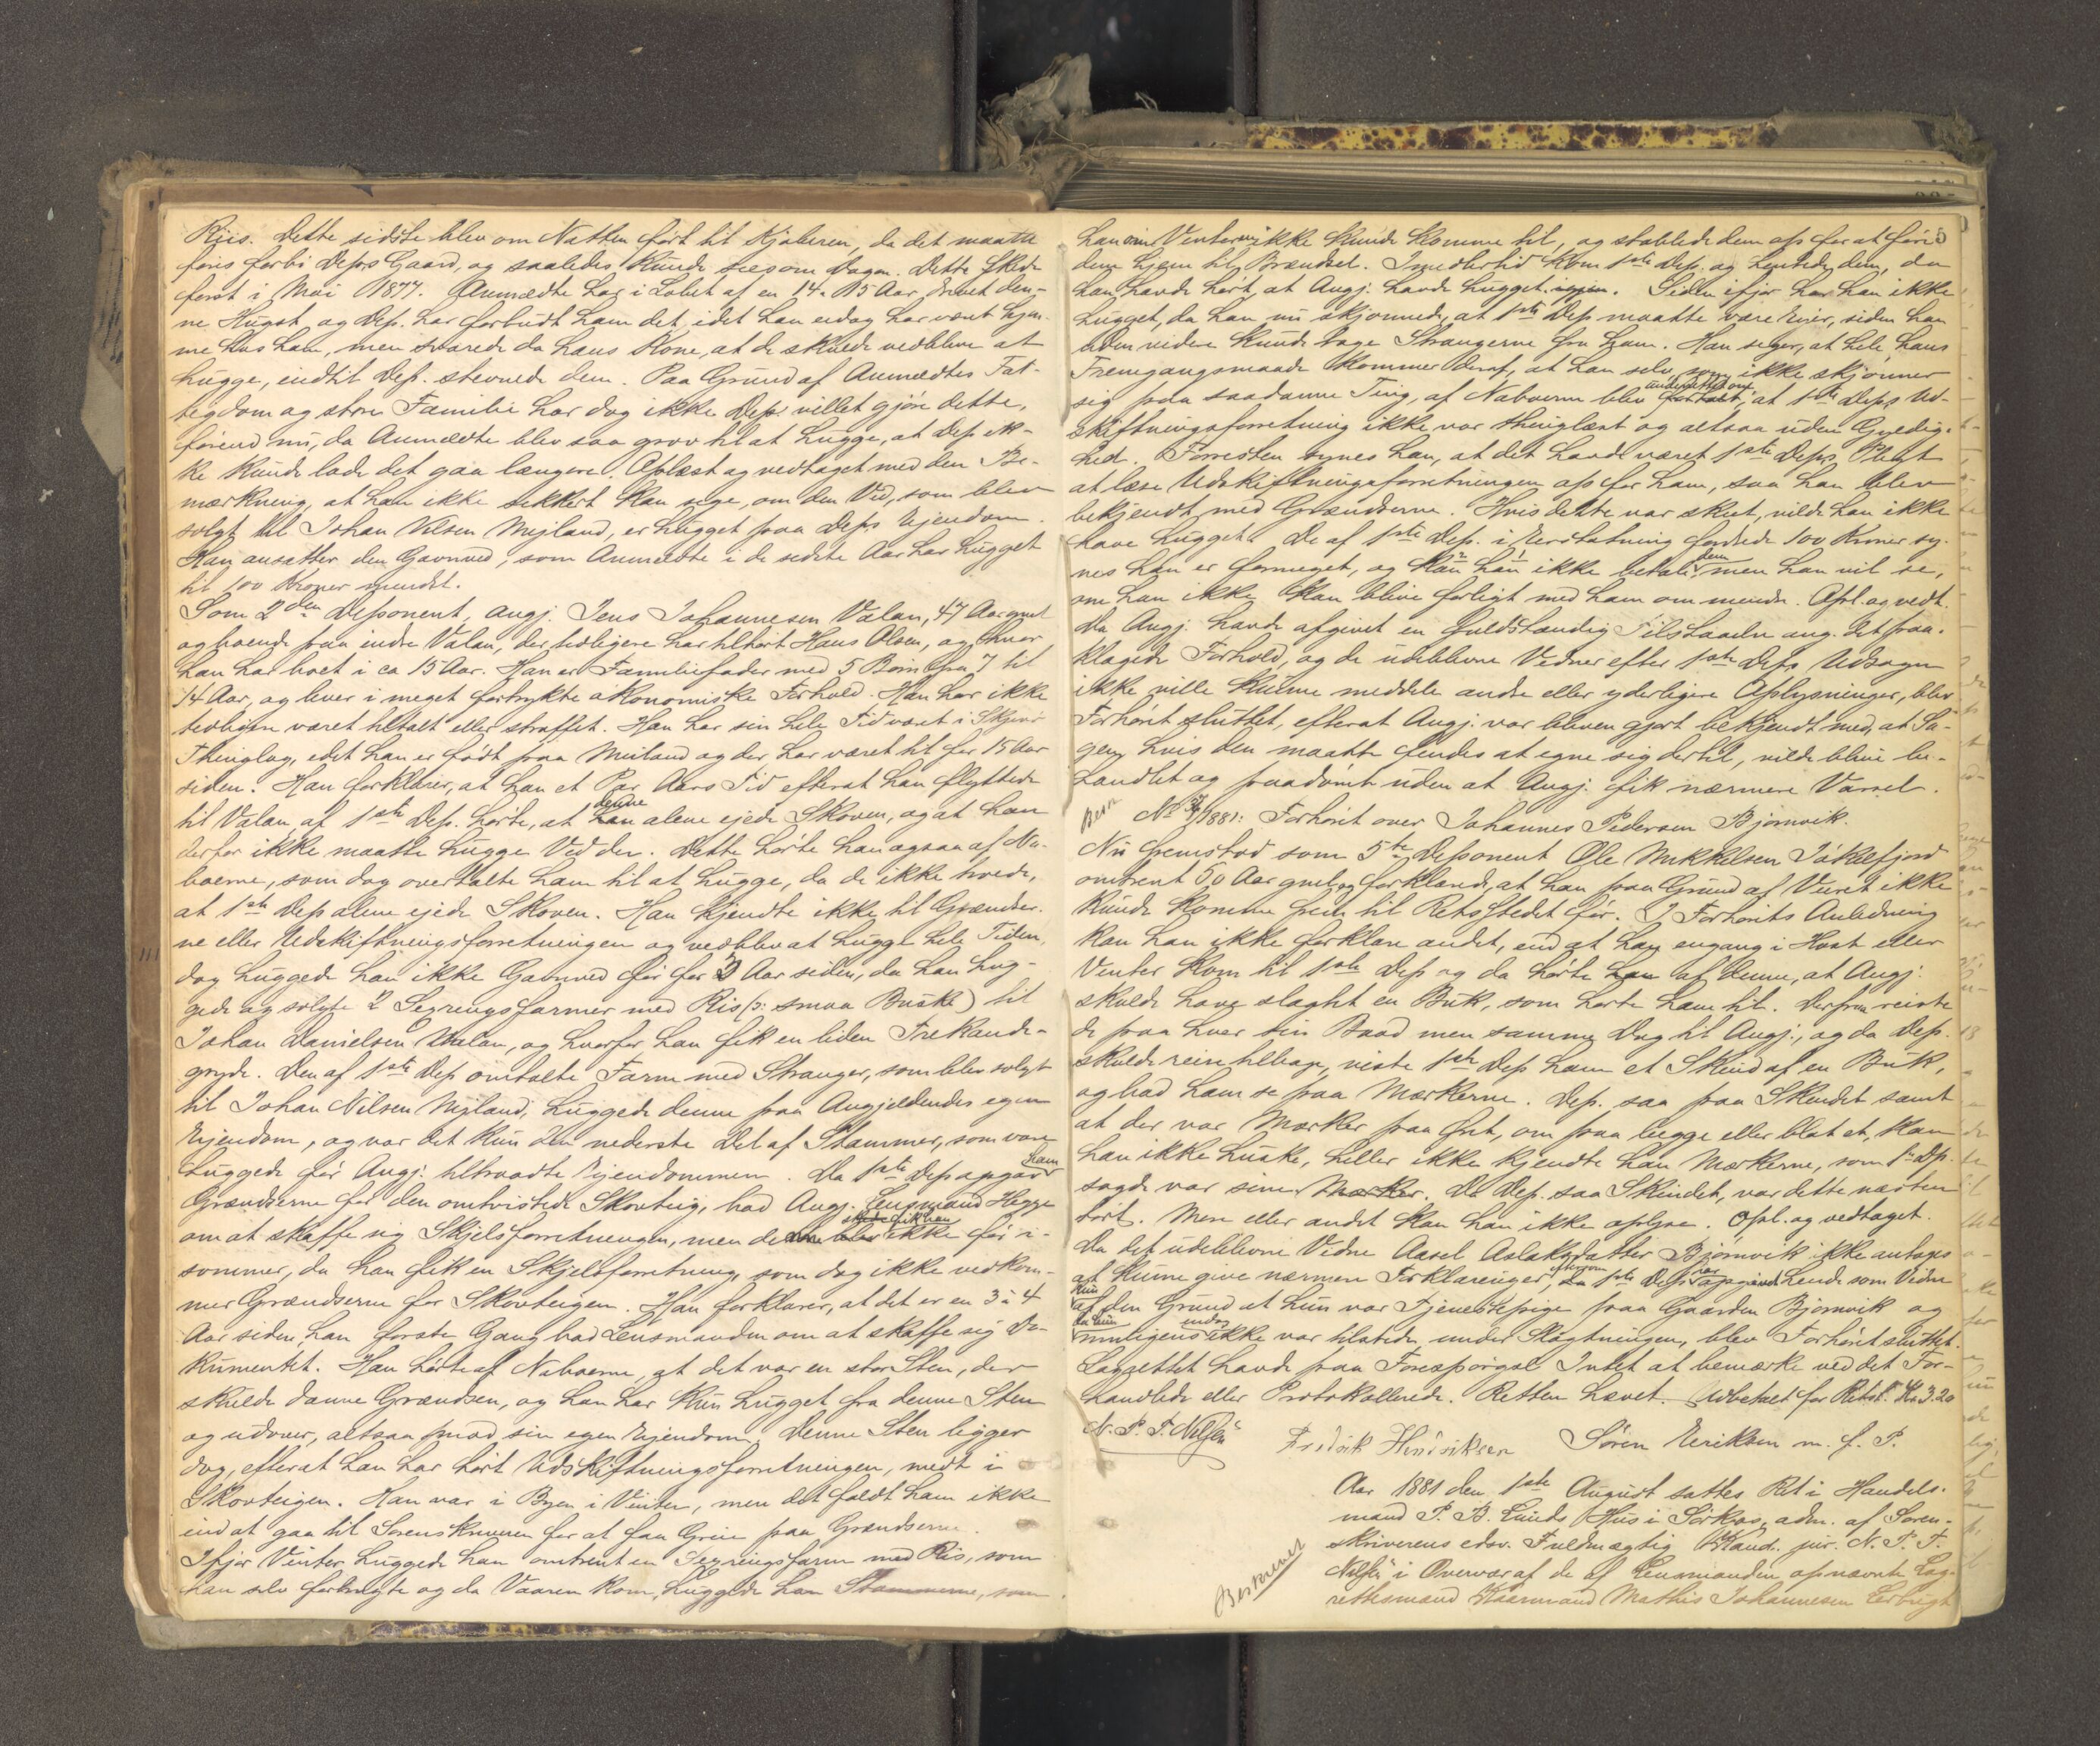 Riis. Dette sidste blev om Natten ført til Kjøberen, da det maatte
føres forbi Deps Gaard, og saaledes kunde sees om Dagen. Dette skede
først i Mai 1877. Anmeldte har i Løbet af en 14 a 15 Aar drevet den-
ne Hugst, og Dep. har forbudt ham det, idet han endog har været hjem-
me hos ham, men svarede da hans Kone, at de skulde vedblive at
hugge, indtil Dep. stevnede dem. Paa Grund af Anmeldtes Fat-
tigdom og store Familie har dog ikke Dep. villet gjøre dette,
førend nu, da Anmeldte blev saa grov til at hugge, at Dep ik-
ke kunde lade det gaa længere. Oplæst og vedtaget med den Be-
mærkning, at han ikke sikkert kan sige, om den Ved, som blev
solgt til Johan Nilsen Mejland, er hugget paa Deps Eiendom.
Han ansætter den Gavnved, som Anmeldte i de sidste Aar har hugget
til 100 Kroner mindst.
Som 2den Deponent, Angj. Jens Johannesen Valan, 47 Aar gml
og boende paa indre Valan, der tidligere har tilhørt Hans Olsen, og hvor
han har boet i ca 15 Aar. Han er Familiefader med 5 Børn fra 7 til
14 Aar, og lever i meget fortrykte økonomiske Forhold. Han har ikke
tidligere været tiltalt eller straffet. Han har sin hele Tid været i Skjervø
Thinglag, idet han er født paa Meiland og der har været til for 15 Aar
siden. Han forklarer, at han et Par Aars Tid efterat han flyttede
til Valan af 1ste Dep. hørte, at denne alene ejede Skoven, og at han
derfor ikke maatte hugge Ved der. Dette hørte han ogsaa af Na-
boerne, som dog overtalte ham til at hugge, da de ikke troede,
at 1ste Dep alene ejede Skoven. Han kjendte ikke til Grændser-
ne eller Udskiftningsforretningen og vedblev at hugge hele Tiden,
dog huggede han ikke Gavnved før for 3 Aar siden, da han hug-
gede og solgte 2 Segreingsfarmer med Ris (ɔ: smaa Buske) til
Johan Danielsen Valan, og hvorfor han fik en liden Trekande-
gryde. Den af 1ste Dep omtalte Farm med Stranger, som blev solgt
til Johan Nilsen Mejland, huggede denne paa Angjældendes egen
Eiendom, og var det kun den nederste Del af Stammer, som vare
huggede før Angj. tiltraadte Eiendommen. Da 1ste Dep opgav ham
Grændserne for den omtvistede Skovteig, bad Angj. Lensmand Hegge
om at skaffe sig Skjelsforretningen, men denne fik han ikke før i-
sommer, da han fik en Skjelsforretning, som dog ikke vedkom-
mer Grændserne for Skovteigen. Han forklarer, at det er en 3 à 4
Aar siden, han første Gang bad Lensmanden om at skaffe sig Do-
kumentet. Han hørte af Naboerne, at det var en stor Sten, der
skulde danne Grændsen, og han har kun hugget fra denne Sten
og udover, altsaa mod sin egen Eiendom. Denne Sten ligger
dog, efterat han har hørt Udskiftningsforretningen, midt i
Skovteigen. Han var i Byen i Vinter, men det faldt ham ikke
ind at gaa til Sorenskriveren for at faa Greie paa Grændserne.
Ifjor Vinter huggede han omtrent en Segreingsfarm med Ris, som
han selv forbrugte og da Vaaren kom, huggede han Stammerne, som
han om Vinteren ikke kunde komme til, og stablede dem op for at føre
dem hjem til Brændsel. Imidlertid kom 1ste Dep. og hentede dem, da
han havde hørt, at Angj. havde hugget igjen. Siden ifjor har han ikke
hugget, da han nu skjønnede, at 1ste Dep maatte være Eier, siden han
uden videre kunde tage Strangerne fra ham. Han siger, at hele hans
Fremgangsmaade kommer deraf, at han selv, som ikke skjønner
sig paa saadanne Ting, af Naboerne blev underrettet om, at 1ste Deps Ud-
skiftningsforretning ikke var thinglæst og altsaa uden Gyldig-
hed. Forresten synes han, at det havde været 1ste Deps Pligt
at læse Udskiftningsforretningen op for ham, saa han blev
bekjendt med Grændserne. Hvis dette var skeet, vilde han ikke
have hugget. De af 1ste Dep. i Erstatning fordrede 100 Kroner sy-
nes han er formeget, og kan han ikke betale dem, men han vil se,
om han ikke kan blive forligt med ham om mindre. Opl. og vedt.
Da Angj. havde afgivet en fuldstændig Tilstaaelse ang. det paa-
klagede Forhold, og de udeblevne Vidner efter 1ste Deps Udsagn
ikke ville kunne meddele andre eller yderligere Oplysninger, blev
Forhørt sluttet, efterat Angj. var bleven gjort bekjendt med, at Sa-
gen, hvis den maatte findes at egne sig dertil, vilde blive be-
handlet og paadømt uden at Angj. fik nærmere Varsel.
No 1881: Forhørit over Johannes Pedersen Bjørnvik.
Nu fremstod som 5te Deponent Ole Mikkelsen Jøkelfjord
omtrent 50 Aar gml. og forklarede, at han paa Grund af Veiret ikke
kunde komme frem til Retsstedet før. I Forhørits Anledning
kan han ikke forklare andet, end at han engang i Høst eller
Vinter kom til 1ste Dep og da hørte han af denne, at Angj.
skulde have slagtet en Buk, som hørte ham til. Derfra reiste
de paa hver sin Baad men samme Dag til Angj., og da Dep.
skulde reise tilbage, viste 1ste Dep ham et Skind af en Buk,
og bad ham se paa Mærkerne. Dep. saa paa Skindet samt
at der var Mærker paa Øret, om paa begge eller blot et, kan
han ikke huske, heller ikke kjendte han Mærkerne, som 1ste Dp.
sagde var sine Mærker. Da Dep. saa Skindet, var dette næsten
tørt. Mere eller andet kan han ikke oplyse. Opl. og vedtaget.
Da det udeblevne Vidne Aasel Aslaksdatter Bjørnvik ikke antages
at kunne give nærmere Forklaringer, eftersom 1ste Dep har opgivet hende som Vidne
kun af den Grund at hun var Tjenestepige paa Gaarden Bjørnvik og
da hun muligens ikke var tilstede under Slagtningen, blev Forhørit sluttet.
Lagrettet havde paa Forespørgsel Intet at bemærke ved det For-
handlede eller Protokollerede. Retten hævet. Udbetalt for Retsl. Kr 3.20
N. P. T. Nilsen
Fredrik Hendriksen Søren Eriksen m. f. P.
Aar 1881 den 1ste August sattes Ret i Handels-
mand P. B. Lunds Hus i Sørkjos, adm. af Soren-
skriverens edsv. Fuldmægtig Kand. jur. N. P. T.
Nilsen i Overvær af de af Lensmanden opnævnte Lag-
rettesmænd Kaarmand Mathis Johannesen
Beskrevet